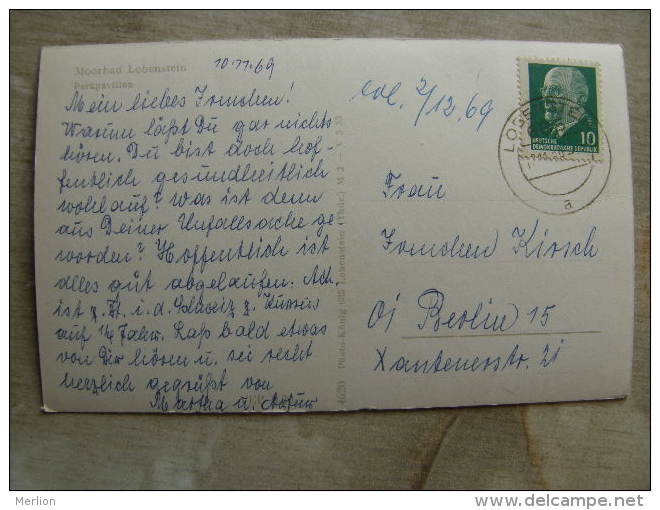 Moorbad Lobenstein
Parkpavillon
10.11.69
Mein liebes Irmchen!
Warum läßt Du gar nichts
hören. Du bist doch hof-
fentlich gesundheitlich
wohlauf? Was ist denn
aus Deiner Unfallsache ge
worden? Hoffentlich ist
alles gut abgelaufen. Ach.
ist z. Zt. i. d. Schweiz z. Kursus
auf 1/4 Jahr. Laß bald etwas
von Dir hören u. sei recht
herzlich gegrüßt von
Martha u. Artur
4620 Photo-König oHG Lobenstein (Thür.) M 2 — V 3 33
2/12.69
LOBENSTEIN
a
10
DEUTSCHE
DEMOKRATISCHE REPUBLIK
Frau
Irmchen Kirsch
01 Berlin 15
Xantenerstr. 21
Merlion
http://www.delcampe.net